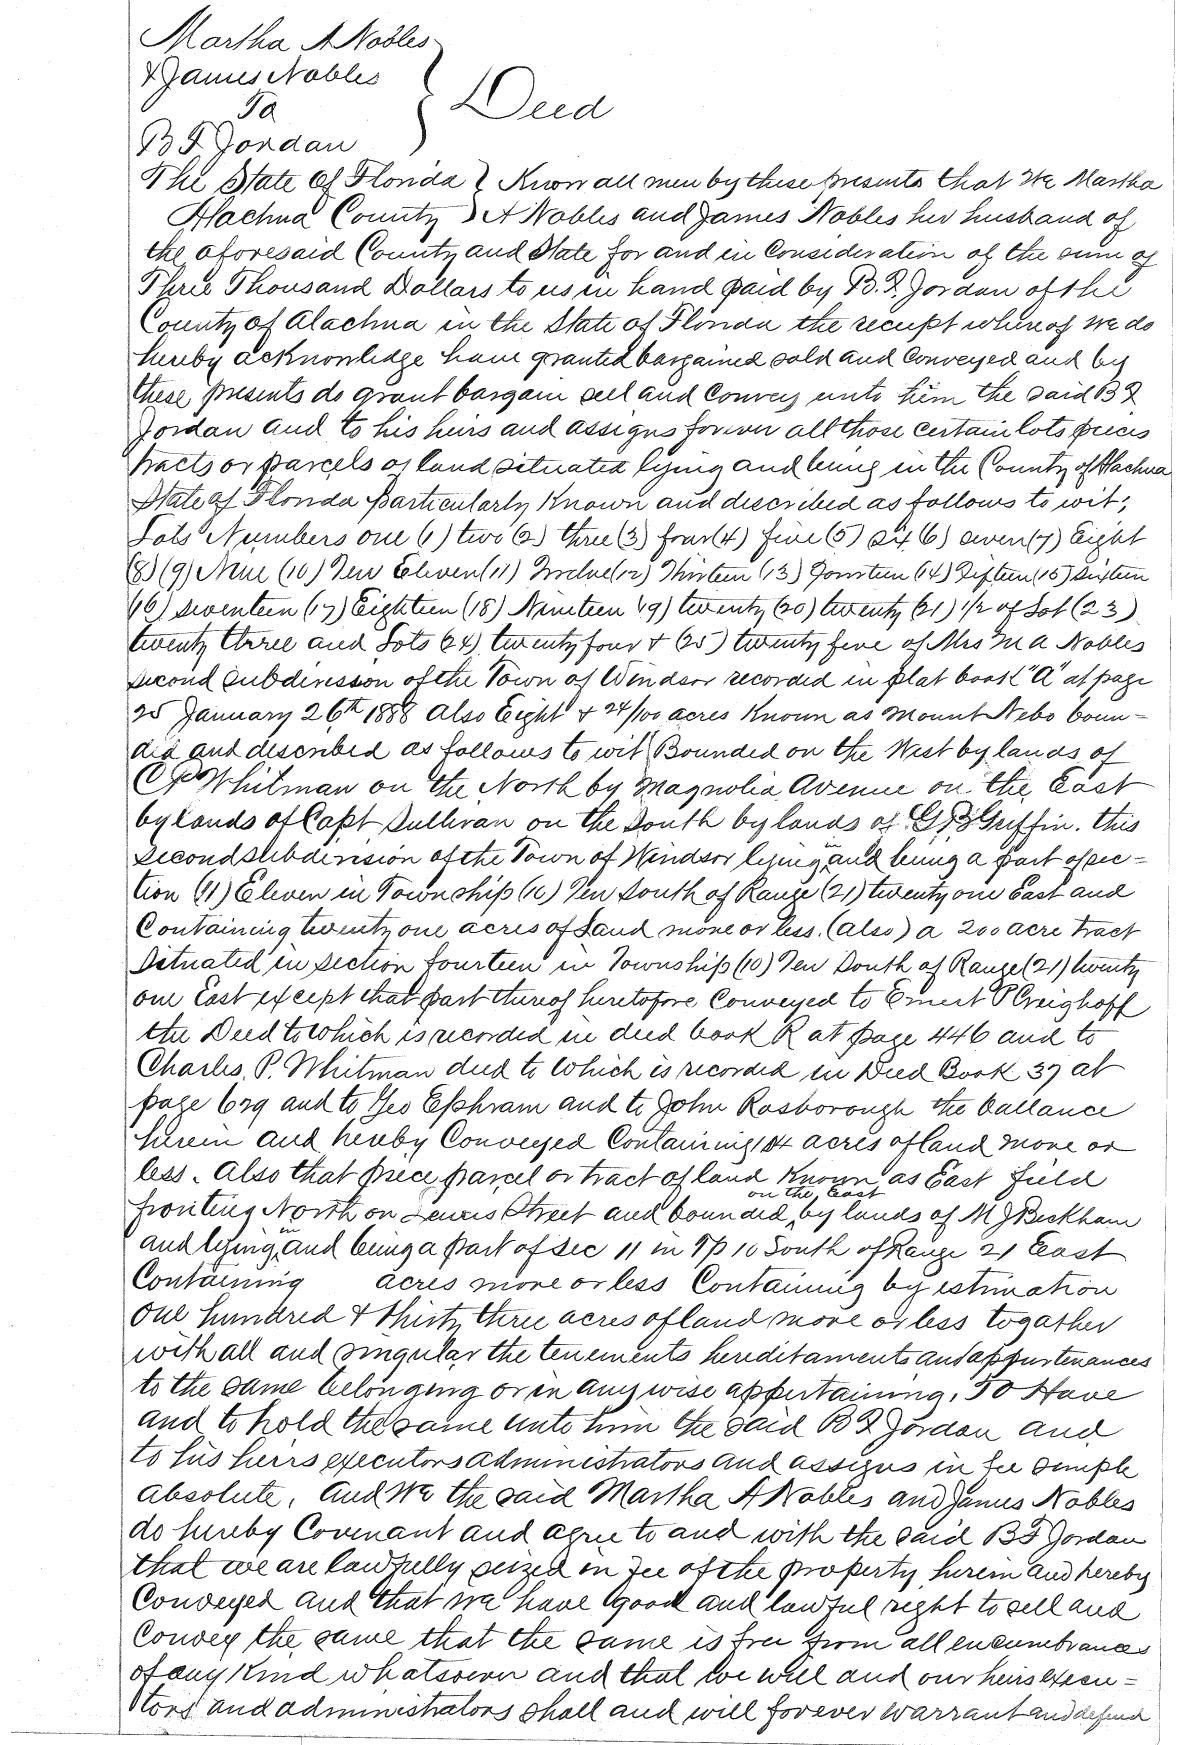 Martha A Nobles
& James Nobles
To
Deed
B F Jordan
The State of Florida } Know all men by these presents that We Martha
Alachua County } A Nobles and James Nobles her husband of
the aforesaid County and State for and in Consideration of the sum of
Three Thousand Dollars to us in hand paid by B. F. Jordan of the
County of Alachua in the State of Florida the receipt whereof we do
hereby acknowledge have granted bargained sold and Conveyed and by
these presents do grant bargain sell and Convey unto him the said B F
Jordan and to his heirs and assigns forever all those certain lots pieces
tracts or parcels of land situated lying and being in the County of Alachua
State of Florida particularly Known and described as follows to wit;
Lots Numbers one (1) two (2) three (3) four (4) five (5) six (6) seven (7) Eight
(8) (9) Nine (10) Ten Eleven (11) Twelve (12) Thirteen (13) Fourteen (14) Fifteen (15) Sixteen
(16) seventeen (17) Eighteen (18) Nineteen (19) twenty (20) twenty (21) 1/2 of Lot (23)
twenty three and Lots (24) twenty four & (25) twenty five of Mrs M A Nobles
second subdivision of the Town of Windsor recorded in plat book "A" at page
25 January 26th 1888 Also Eight & 24/100 acres Known as Mount Nebo boun-
ded and described as follows to wit Bounded on the West by lands of
C P Whitman on the North by Magnolia Avenue on the East
by lands of Capt Sullivan on the South by lands of G B Griffin. this
second subdivision of the Town of Windsor lying in and being a part of sec-
tion (11) Eleven in Township (10) Ten South of Range (21) twenty one East and
Containing twenty one acres of Land more or less. (also) a 200 acre tract
Situated in section fourteen in Township (10) Ten South of Range (21) twenty
one East except that part thereof heretofore Conveyed to Ernest P Creighoff
the Deed to Which is recorded in deed book R at page 446 and to
Charles. P. Whitman deed to which is recorded in Deed Book 37 at
page 629 and to Geo Ephram and to John Rosborough the ballance
herein and hereby Conveyed Containing 104 acres of land more or
less. Also that piece parcel or tract of land Known as East field
fronting North on Lewis Street and bounded on the East by lands of M J Beckham
and lying in and being a part of Sec 11 in Tp 10 South of Range 21 East
Containing acres more or less Containing by estimation
one hundred & thirty three acres of land more or less togather
with all and singular the tenements hereditaments and appurtenances
to the same belonging or in any wise appertaining. To Have
and to hold the same unto him the said B F Jordan and
to his heirs executors administrators and assigns in fee simple
absolute. And We the said Martha A Nobles and James Nobles
do hereby Covenant and agree to and with the said B F Jordan
that we are lawfully seized in Fee of the property herein and hereby
Conveyed and that we have good and lawful right to sell and
Convey the same that the same is free from all encumbrances
of any Kind whatsoever and that we will and our heirs execu-
tors and administrators shall and will forever warrant and defend